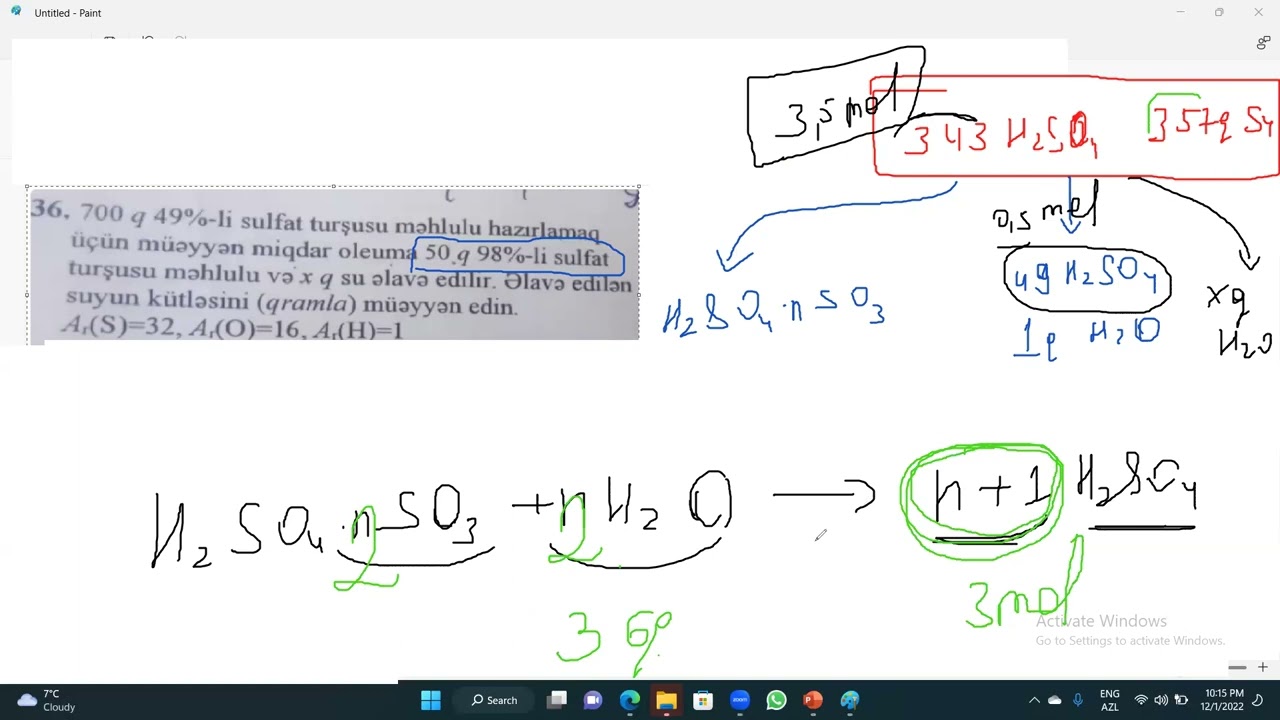 Untitled - Paint
3,5 mol
343 H2SO4 357q S4
36. 700 q 49%-li sulfat turşusu məhlulu hazırlamaq
üçün müəyyən miqdar oleuma 50 q 98%-li sulfat
turşusu məhlulu və x q su əlavə edilir. Əlavə edilən
suyun kütləsini (qramla) müəyyən edin.
Ar(S)=32, Ar(O)=16, Ar(H)=1
0,5 mol
49 H2SO4
1q H2O
H2SO4·nSO3
xq
H2O
H2SO4·nSO3 + nH2O → n+1 H2SO4
2 2
36q
3mol
Activate Windows
Go to Settings to activate Windows.
7°C
Cloudy
Search
ENG
AZL
10:15 PM
12/1/2022